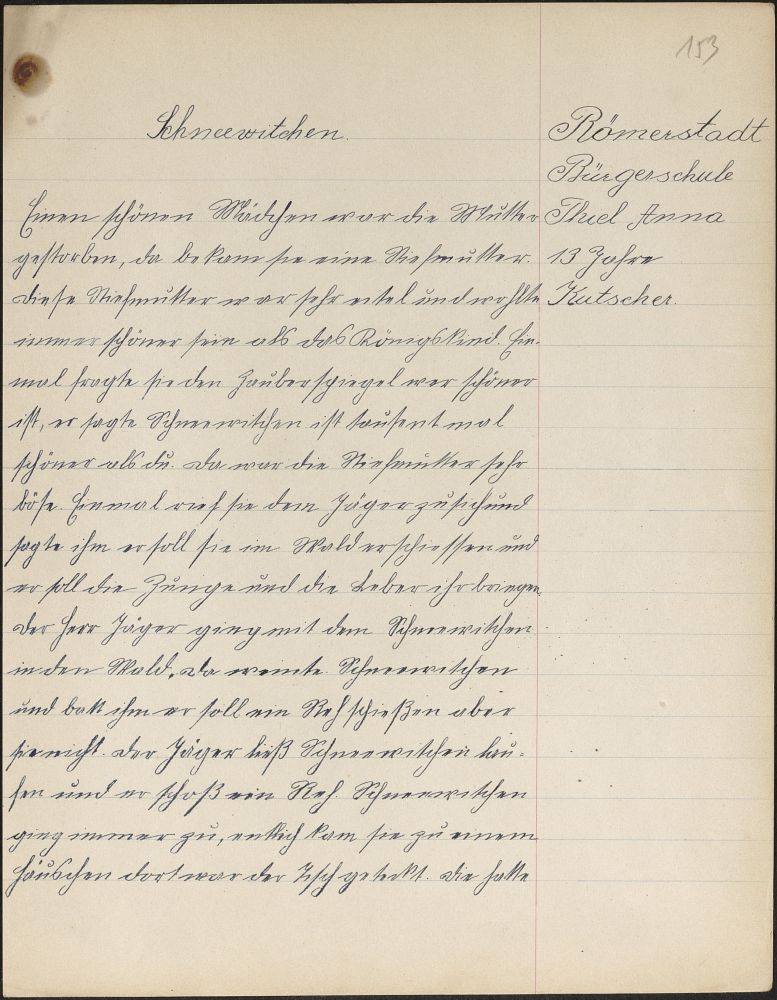 153
Schneewitchen.
Römerstadt
Bürgerschule
Thiel Anna
13 Jahre
Kutscher.
Einen schönen Mädchen war die Mutter
gestorben, da bekam sie eine Stiefmutter.
Diese Stiefmutter war sehr eitel und wohlte
immer schöner sein als das Königskind. Ein-
mal fragte sie den Zauberspiegel wer schöner
ist, er sagte Schneewitchen ist tausent mal
schöner als du. Da war die Stiefmutter sehr
böse. Einmal rief sie dem Jäger zu sich und
sagte ihm er soll sie im Wald erschiessen und
er soll die Zunge und die Leber ihr bringen.
Der Herr Jäger ging mit dem Schneewitchen
in den Wald. Da weinte Schneewitchen
und batt ihm er soll ein Reh schießen aber
sie nicht. Der Jäger ließ Schneewitchen lau-
fen und er schoß ein Reh. Schneewitchen
ging immer zu, entlich kam sie zu einem
Häuschen dort war der Tisch geteckt. Die hatte